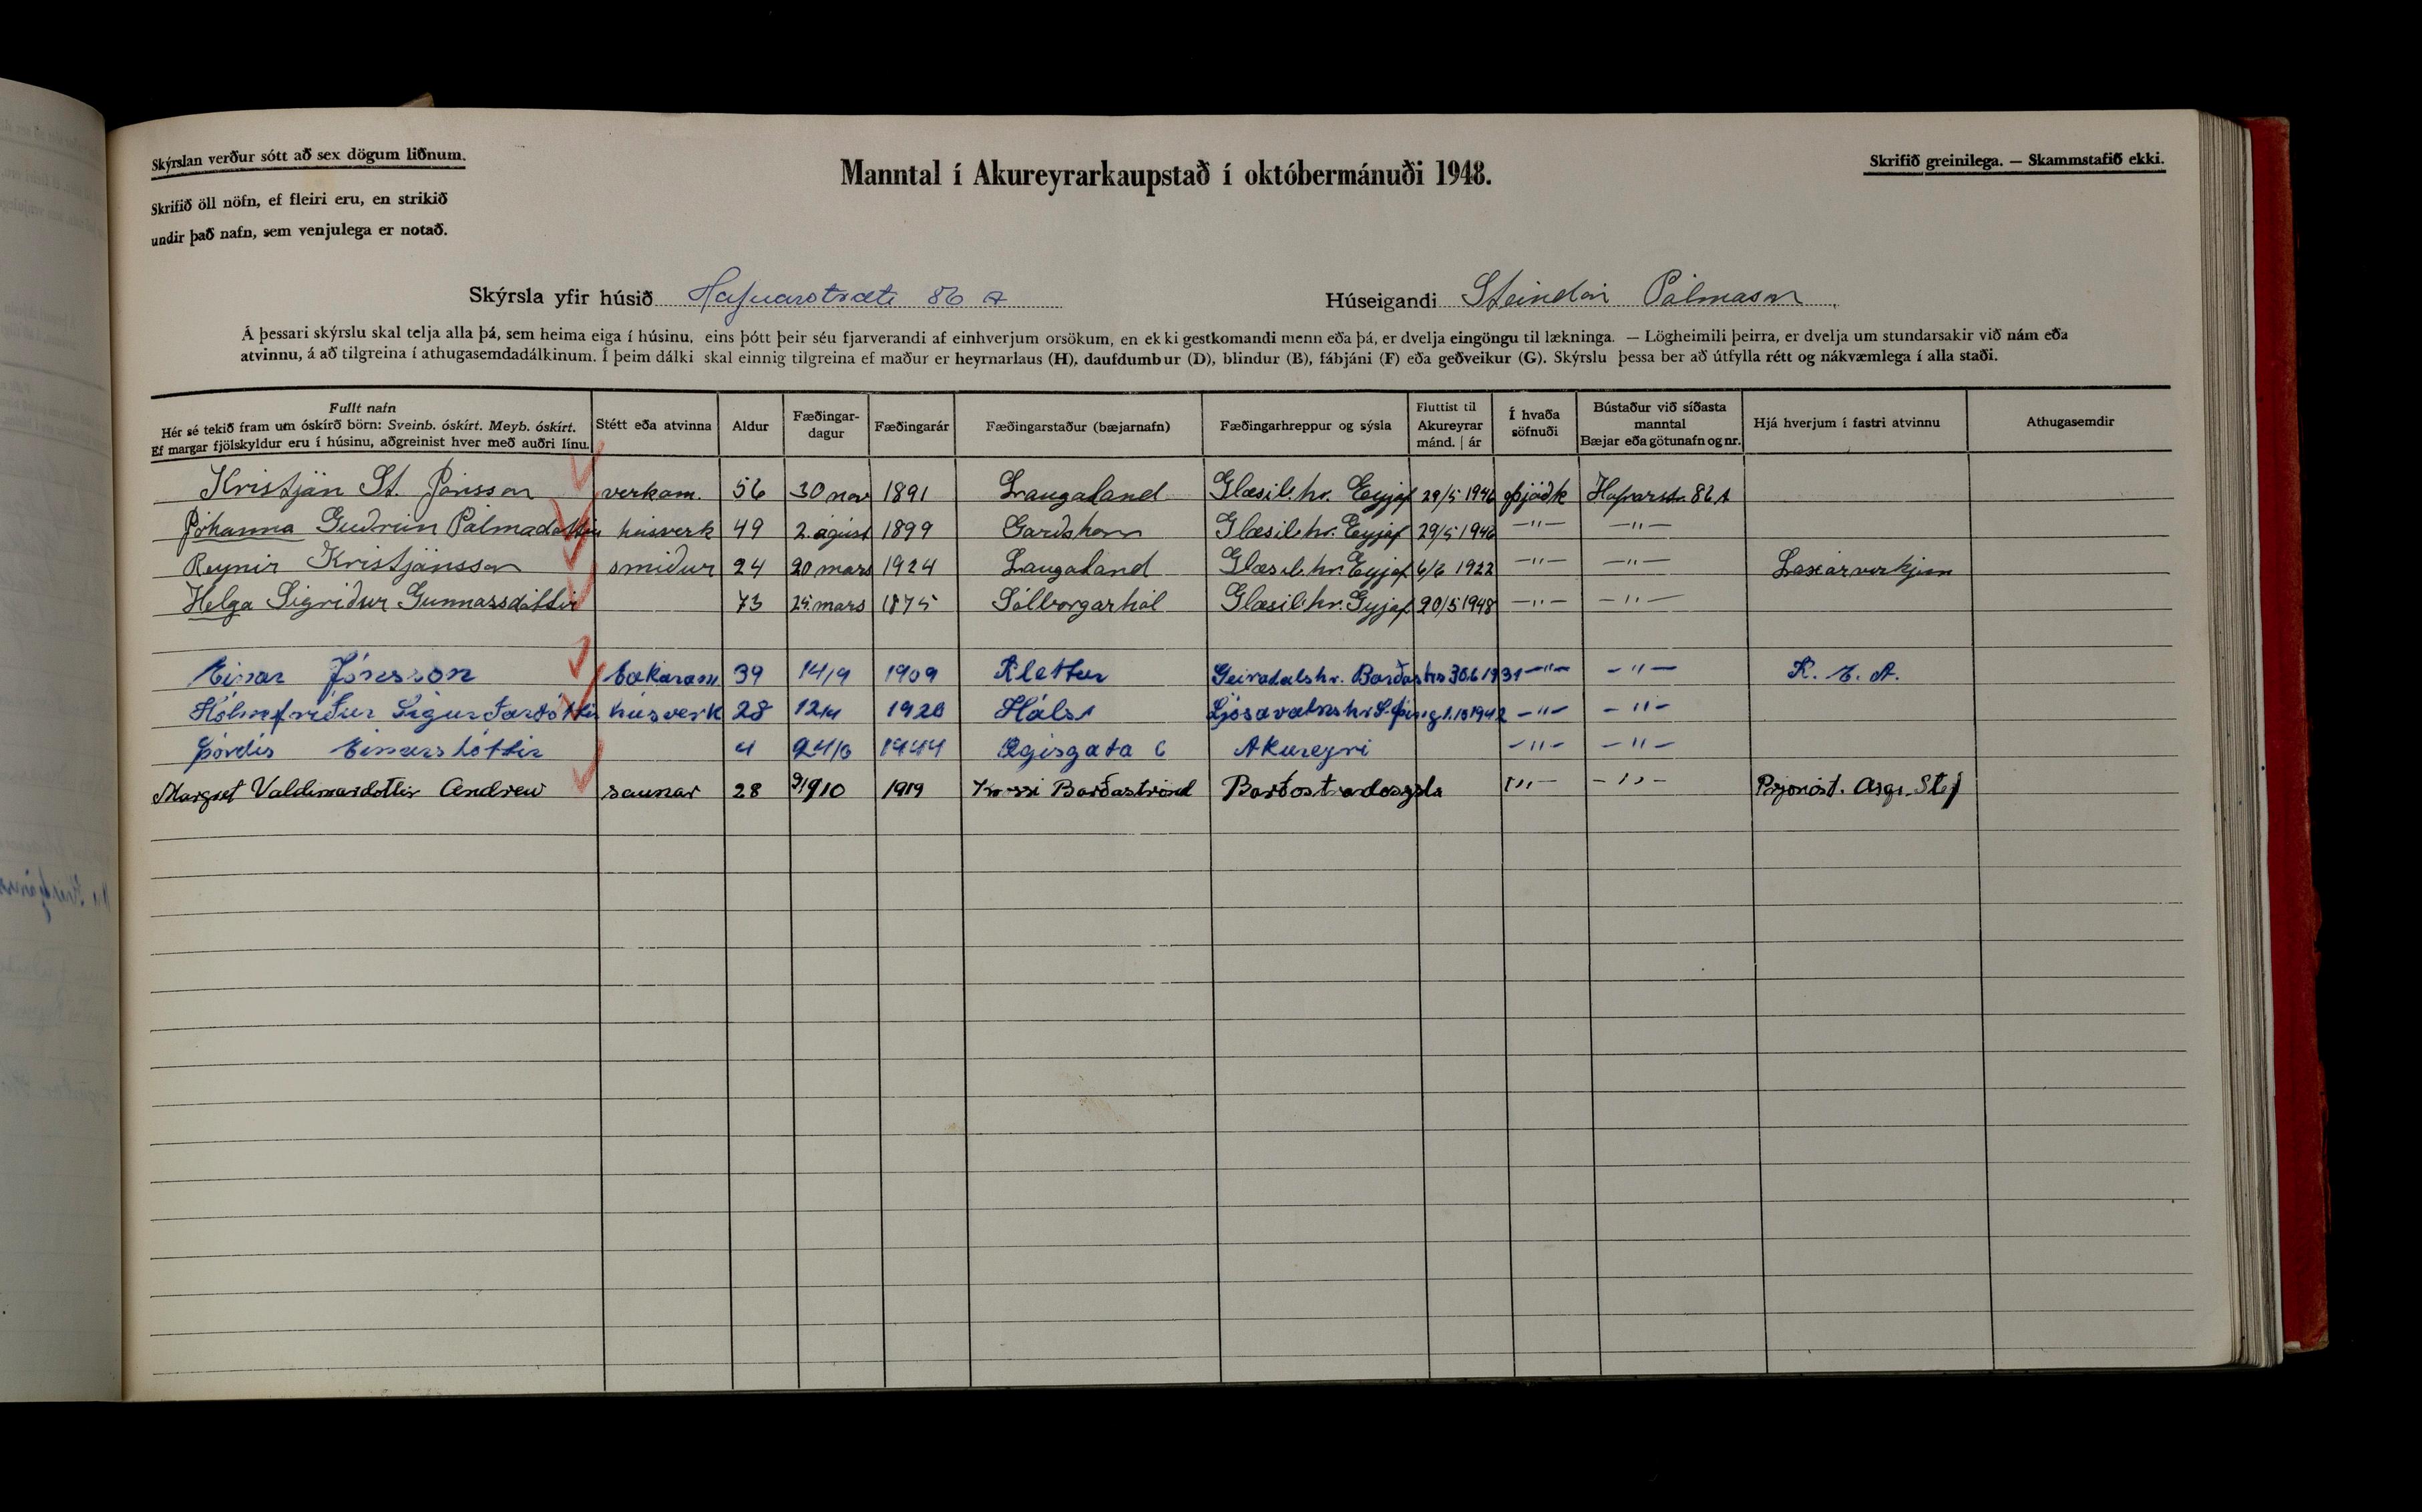 Skýrslan verður sótt að sex dögum liðnum.
Skrifið öll nöfn, ef fleiri eru, en strikið
undir það nafn, sem venjulega er notað.
Manntal í Akureyrarkaupstað í októbermánuði 1948.
Skrifið greinilega. — Skammstafið ekki.
Skýrsla yfir húsið Hafnarstræti 86 A
Húseigandi Steindór Pálmason
Á þessari skýrslu skal telja alla þá, sem heima eiga í húsinu, eins þótt þeir séu fjarverandi af einhverjum orsökum, en ekki gestkomandi menn eða þá, er dvelja eingöngu til lækninga. — Lögheimili þeirra, er dvelja um stundarsakir við nám eða
atvinnu, á að tilgreina í athugasemdadálkinum. Í þeim dálki skal einnig tilgreina ef maður er heyrnarlaus (H), daufdumbur (D), blindur (B), fábjáni (F) eða geðveikur (G). Skýrslu þessa ber að útfylla rétt og nákvæmlega í alla staði.
Fullt nafn
Hér sé tekið fram um óskírð börn: Sveinb. óskírt. Meyb. óskírt.
Ef margar fjölskyldur eru í húsinu, aðgreinist hver með auðri línu.
Stétt eða atvinna
Aldur
Fæðingar-
dagur
Fæðingarár
Fæðingarstaður (bæjarnafn)
Fæðingarhreppur og sýsla
Fluttist til
Akureyrar
mánd. | ár
Í hvaða
söfnuði
Bústaður við síðasta
manntal
Bæjar eða götunafn og nr.
Hjá hverjum í fastri atvinnu
Athugasemdir
Kristján St. Jónsson verkam. 56 30 nov 1891 Laugaland Glæsib.hr. Eyjaf 29/5 1946 þjóðk Hafnarstr. 86 A
Jóhanna Guðrún Pálmadóttir húsverk 49 2. ágúst 1899 Garðshorn Glæsib.hr. Eyjaf 29/5 1946 —"— —"—
Reynir Kristjánsson smiður 24 20 mars 1924 Laugaland Glæsib.hr. Eyjaf 6/6 1922 —"— —"— Laxárvirkjun
Helga Sigríður Gunnarsdóttir 73 25. mars 1875 Sólborgarhól Glæsib.hr. Eyjaf 20/5 1948 —"— —"—
Einar Jónsson bakaram. 39 14/9 1909 Klettur Geiradalshr. Barðastrs 30.6 1931 —"— —"— K. E. A.
Hólmfríður Sigurðardóttir húsverk 28 12/4 1920 Háls Ljósavatnshr S-þing 1.10 1942 —"— —"—
Þórdís Einarsdóttir 4 24/6 1944 Ægisgata 6 Akureyri —"— —"—
Margret Valdimarsdóttir Andrew saumar 28 1919 Barðaströnd Barðastrandasysla —"— —"— Prjónast. Ásgr. Stef